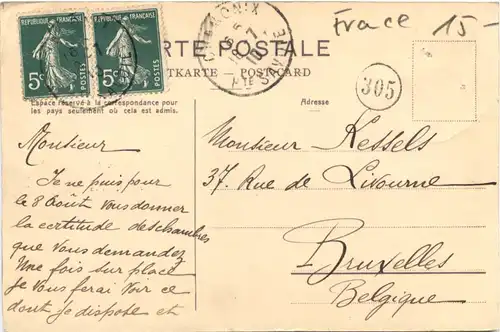 RÉPUBLIQUE FRANÇAISE
RÉPUBLIQUE FRANÇAISE
5c POSTES
5c POSTES
CHAMONIX
HTE SAVOIE
Frace 15-
CARTE POSTALE
POSTKARTE - POSTCARD
305
Espace réservé à la correspondance pour
les pays seulement où cela est admis.
Adresse
Monsieur
Je ne puis pour
le 8 Août vous donner
la certitude des chambres
que vous demandez
Une fois sur place
je vous ferai voir ce
dont je dispose et
Monsieur Kessels
37. Rue de Livourne
Bruxelles
Belgique